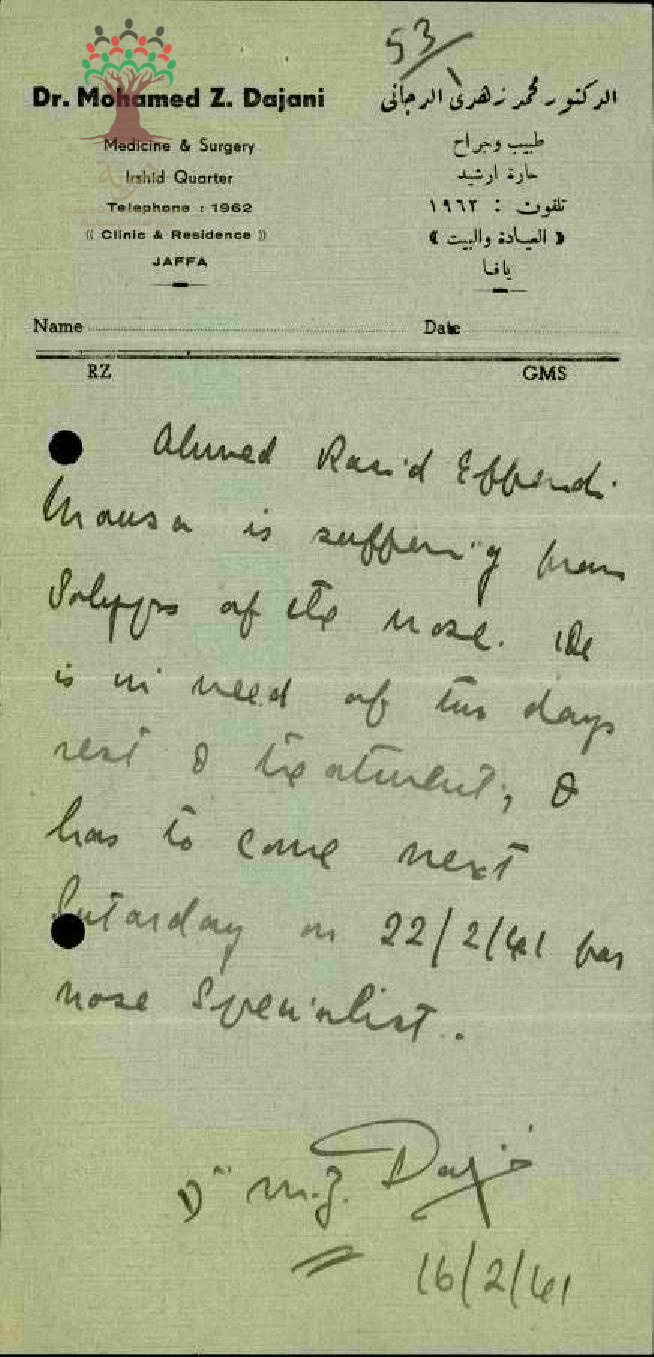 53
Dr. Mohamed Z. Dajani
الدكتور محمد زهدي الدجاني
Medicine & Surgery
طبيب وجراح
Irshid Quarter
حارة ارشيد
Telephone : 1962
تلفون : ١٩٦٢
(( Clinic & Residence ))
﴿ العيادة والبيت ﴾
JAFFA
يافا
Name
Date
RZ
GMS
Ahmed Rasid Effendi
Mousa is suffering from
Polypps of the nose. He
is in need of two days
rest & treatment, &
has to come next
Saturday on 22/2/41 for
nose specialist.
Dr M.Z. Dajani
16/2/41